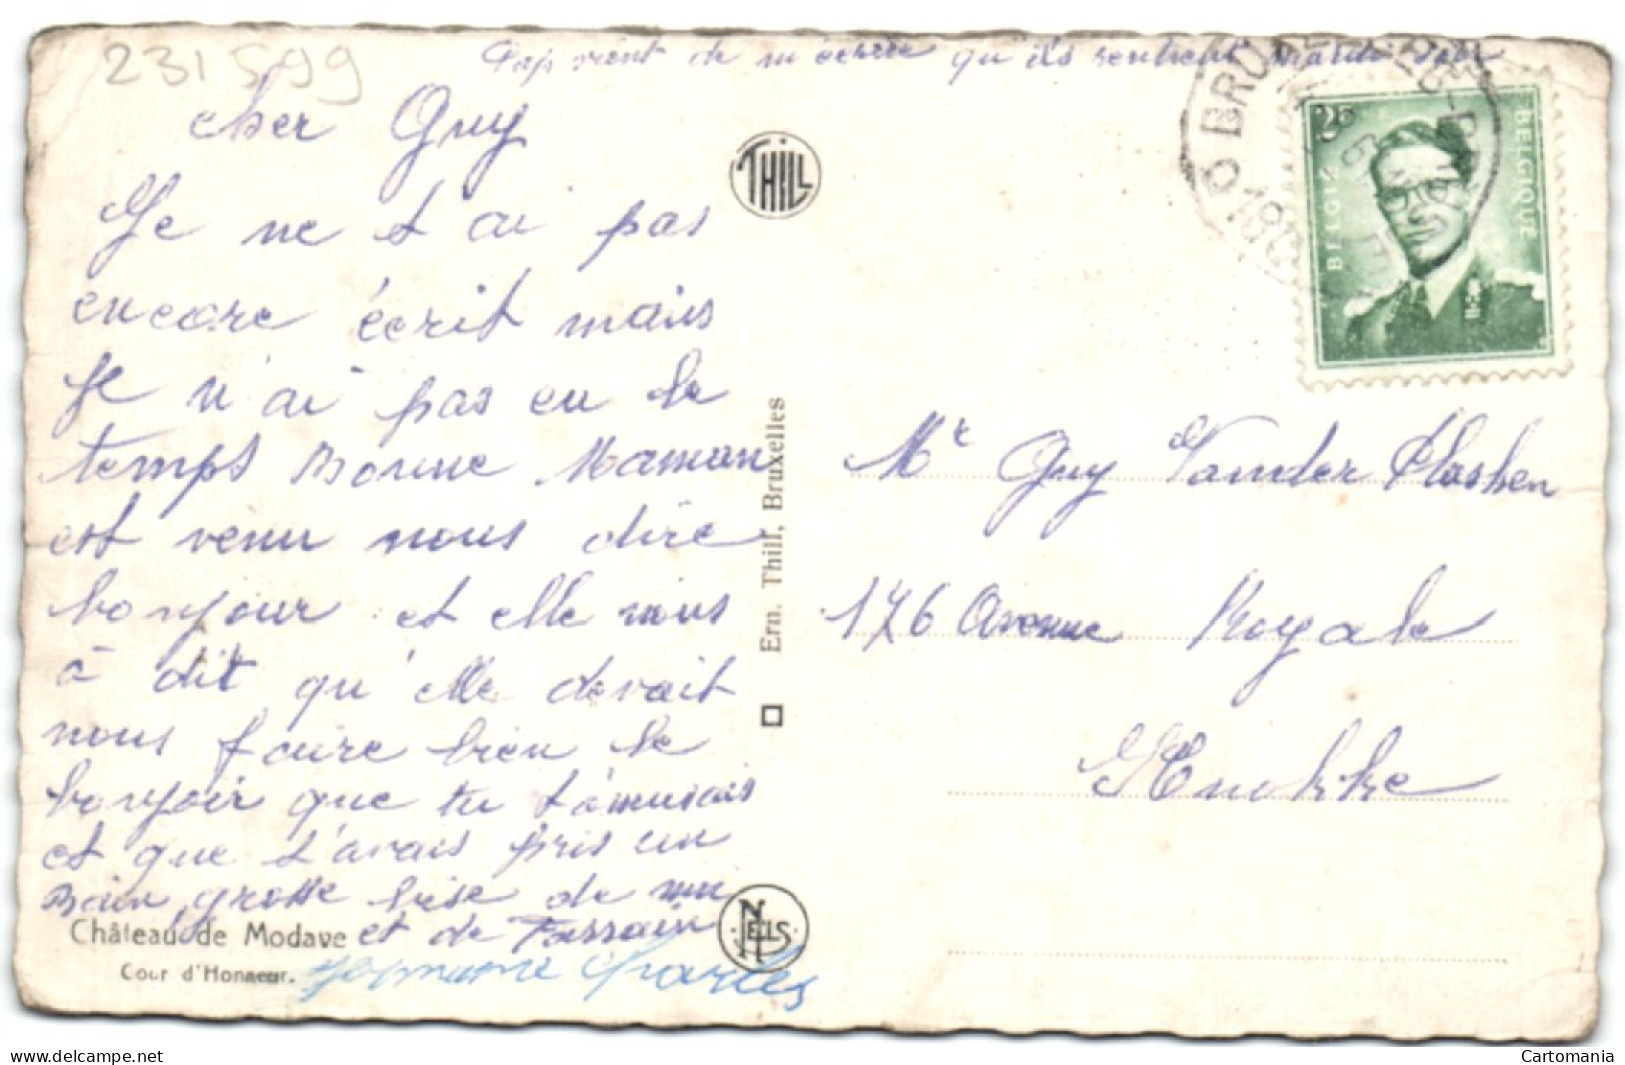 231599
vient de m'écrire qu'ils rentrent mardi soir
cher Guy
Je ne t'ai pas
encore écrit mais
Je n'ai pas eu le
temps Bonne Maman
est venu nous dire
bonjour et elle nous
à dit qu'elle devait
nous faire bien le
bonjoir que tu t'amusais
et que t'avais pris un
Bain, grosse bise de moi
et de
Château de Modave
Cour d'Honneur.
Charles
THILL
Ern. Thill, Bruxelles
NELS
BELGIE BELGIQUE
Mr Guy Vander
176 Avenue Royale
Knokke
www.delcampe.net
Cartomania